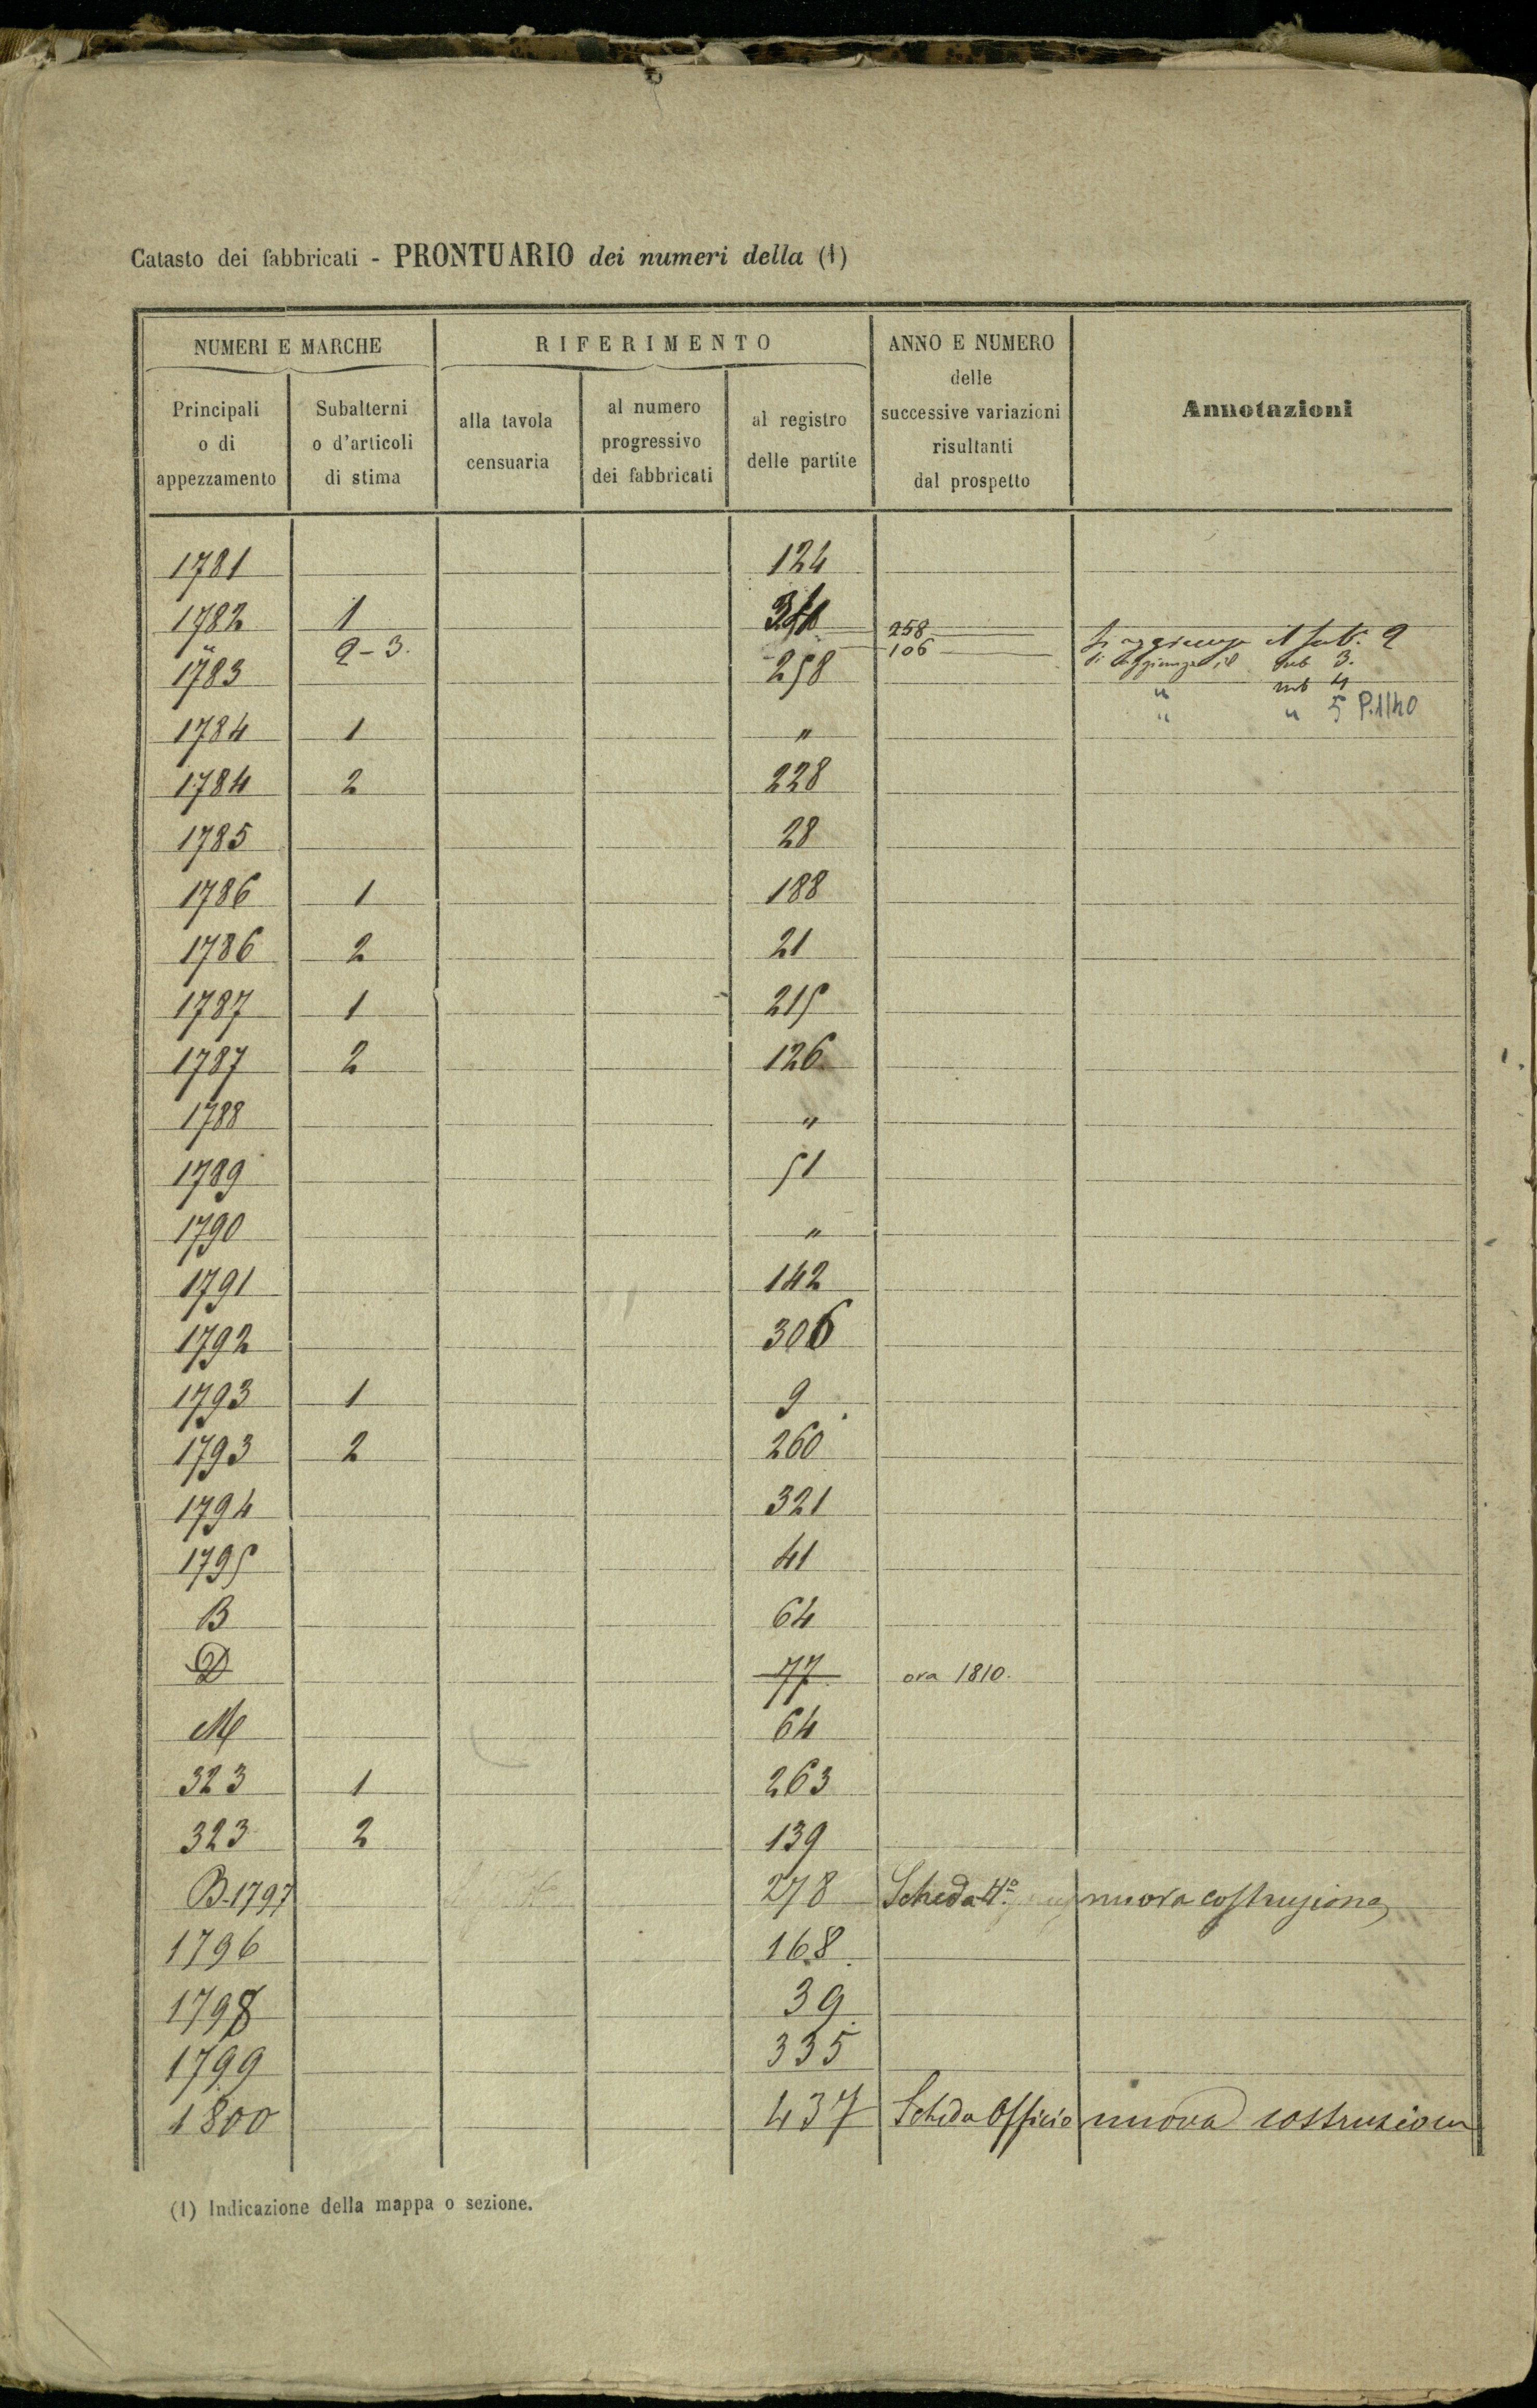 Catasto dei fabbricati - PRONTUARIO dei numeri della (1)
NUMERI E MARCHE
RIFERIMENTO
ANNO E NUMERO
delle
successive variazioni
risultanti
dal prospetto
Annotazioni
Principali
o di
appezzamento
Subalterni
o d'articoli
di stima
alla tavola
censuaria
al numero
progressivo
dei fabbricati
al registro
delle partite
1781 124
1782 1 258 Si aggiunge il sub. 2
" 2-3. 106 Si aggiunge il sub 3.
1783 258 " sub 4
" " 5 P.1140
1784 1 "
1784 2 228
1785 28
1786 1 188
1786 2 21
1787 1 215
1787 2 126
1788 "
1789 51
1790 "
1791 142
1792 306
1793 1 9
1793 2 260
1794 321
1795 41
B 64
D 77 ora 1810.
M 64
323 1 263
323 2 139
B-1797 278 Scheda 4ª nuova costruzione
1796 168
1798 39
1799 335
1800 437 Scheda Officio nuova costruzione
(1) Indicazione della mappa o sezione.